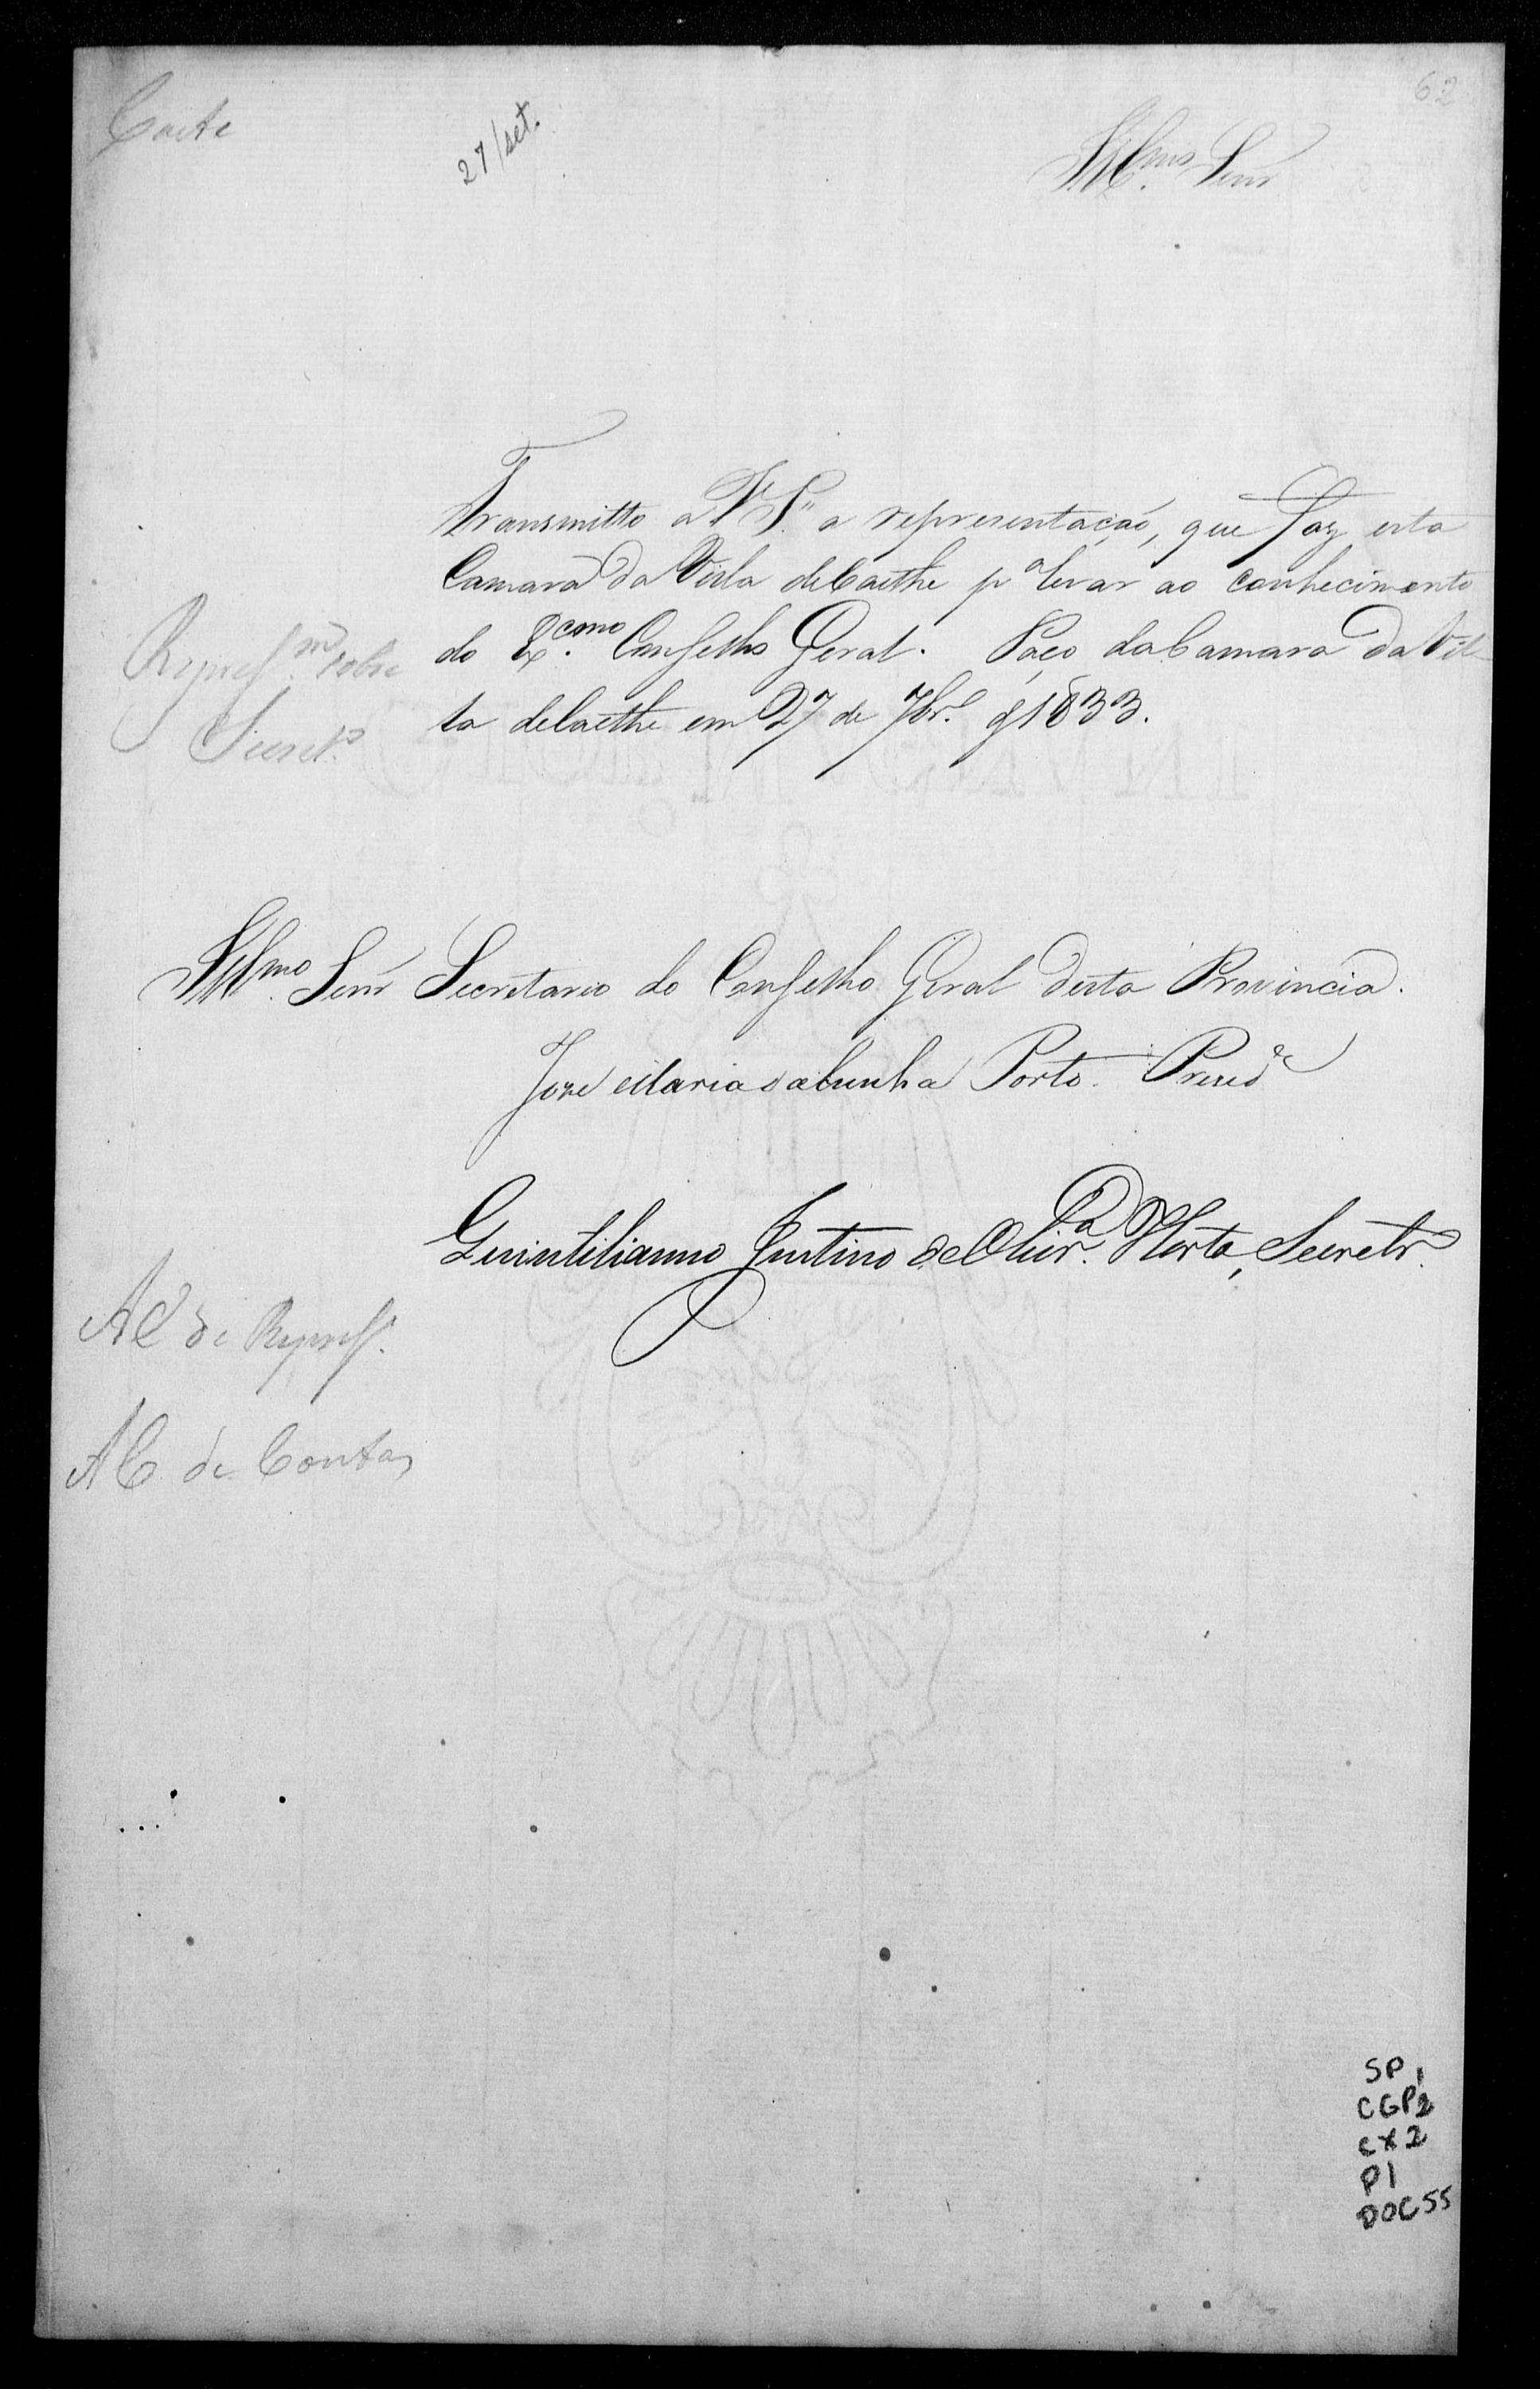 62
Caeté
27/set.
Ill.mo Senr
Transmitto a V S.a a representação, que faz esta
Camara da Villa de Caethe p.a levar ao conhecimento
do Ex.cmo Conselho Geral. Paço da Camara da Vil-
la de Caethe em 27 de 7br.o d 1833.
Repres.m sobre
Secret.o
Ill.mo Senr Secretario do Conselho Geral desta Provincia.
Joze Maria da Cunha Porto. Prezid.e
Quintilianno Justino de Olivr.a Horta, Secretr.o
Á C de Repres.
Á C de Contas
SP 1
CGP2
CX2
P1
DOC55